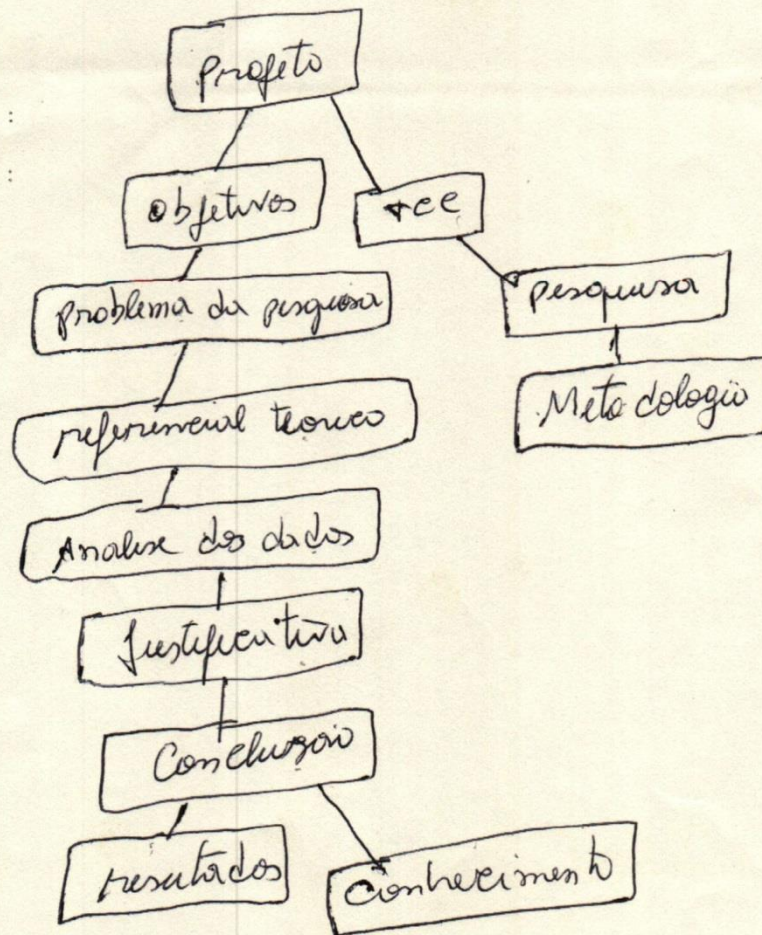 projeto
objetivos
tcc
problema da pesquisa
pesquisa
referencial teorico
Metodologia
Analise dos dados
Justificativa
Conclusão
resultados
conhecimento